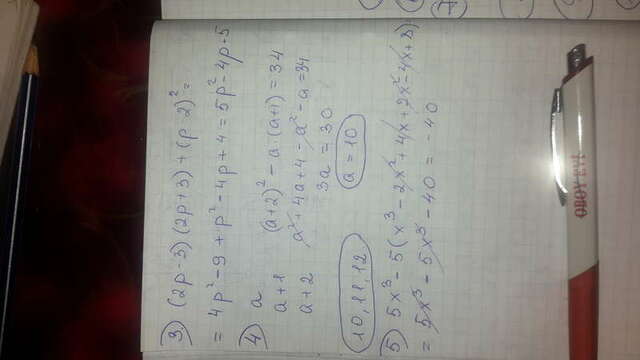 3) (2p-3)(2p+3)+(p-2)²=
= 4p²-9+p²-4p+4=5p²-4p-5
4) a
a+1
a+2
(a+2)²-a·(a+1)=34
a²+4a+4-a²-a=34
3a=30
a=10
10,11,12
5) 5x³-5(x³-2x²+4x+2x²-4x+8)
= 5x³-5x³-40=-40